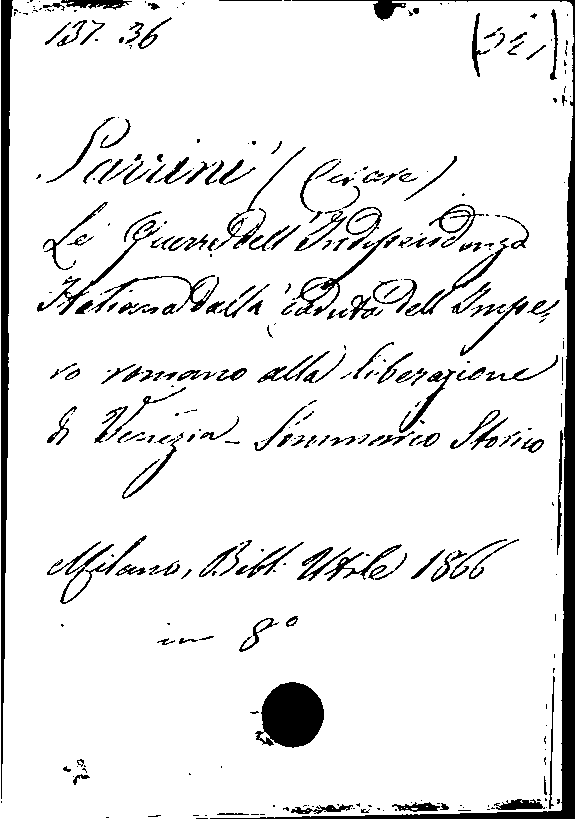 137. 36
Parrini (Cesare)
Le Guerre dell'Indipendenza
Italiana dalla caduta dell'Impe-
ro romano alla liberazione
di Venezia - Sommario Storico
Milano, Bibl. Utile 1866
in 8°